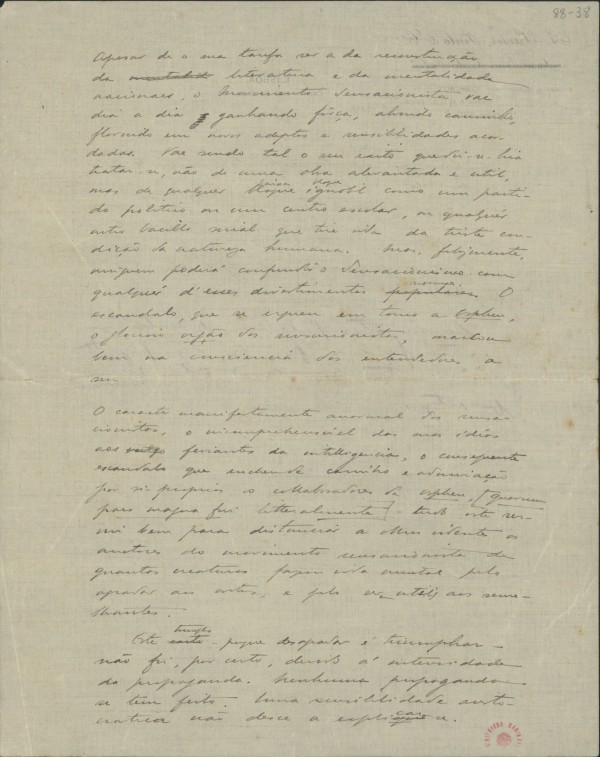 88-38
Apesar de a sua tarefa ser a da reconstrução
da literatura e da mentalidade
nacionaes, o Movimento Sensacionista vae
dia a dia ganhando força, abrindo caminho,
florindo em novos adeptos e sensibilidades acor-
dadas. Vae sendo tal o seu exito que
tratar-se, não de uma obra alevantada e util,
mas de qualquer cousa ignobil como um parti-
do politico ou um centro escolar, ou qualquer
outro bacillo social que tire vida da triste con-
dição da natureza humana. Mas, felizmente,
ninguem poderá confundir o Sensacionismo com
qualquer d'esses divertimentos O
escandalo, que se ergueu em torno a Orpheu,
o glorioso orgão dos sensacionistas, mostrou
bem na consciencia dos entendedores a
seu
O caracter manifestamente anormal dos sensa-
cionistas, o incomprehensivel das suas idéas
aos feriantes da intelligencia, o consequente
escandalo que encheu de carinho e admiração
por si-proprios os collaboradores de Orpheu,
para magua fui litteralmente tudo este ser-
viu bem para distanciar a olhos videntes os
auctores do movimento sensacionista de
quantas creaturas fazem vida mental pelo
agradar aos outros, e pelo ser uteis aos seme-
lhantes.
Este triumpho - porque desagradar é triumphar -
não foi, por certo, devido á intensidade
da propaganda. Nenhuma propaganda
se tem feito. Uma sensibilidade aristo-
cratica não desce a explicar-se.